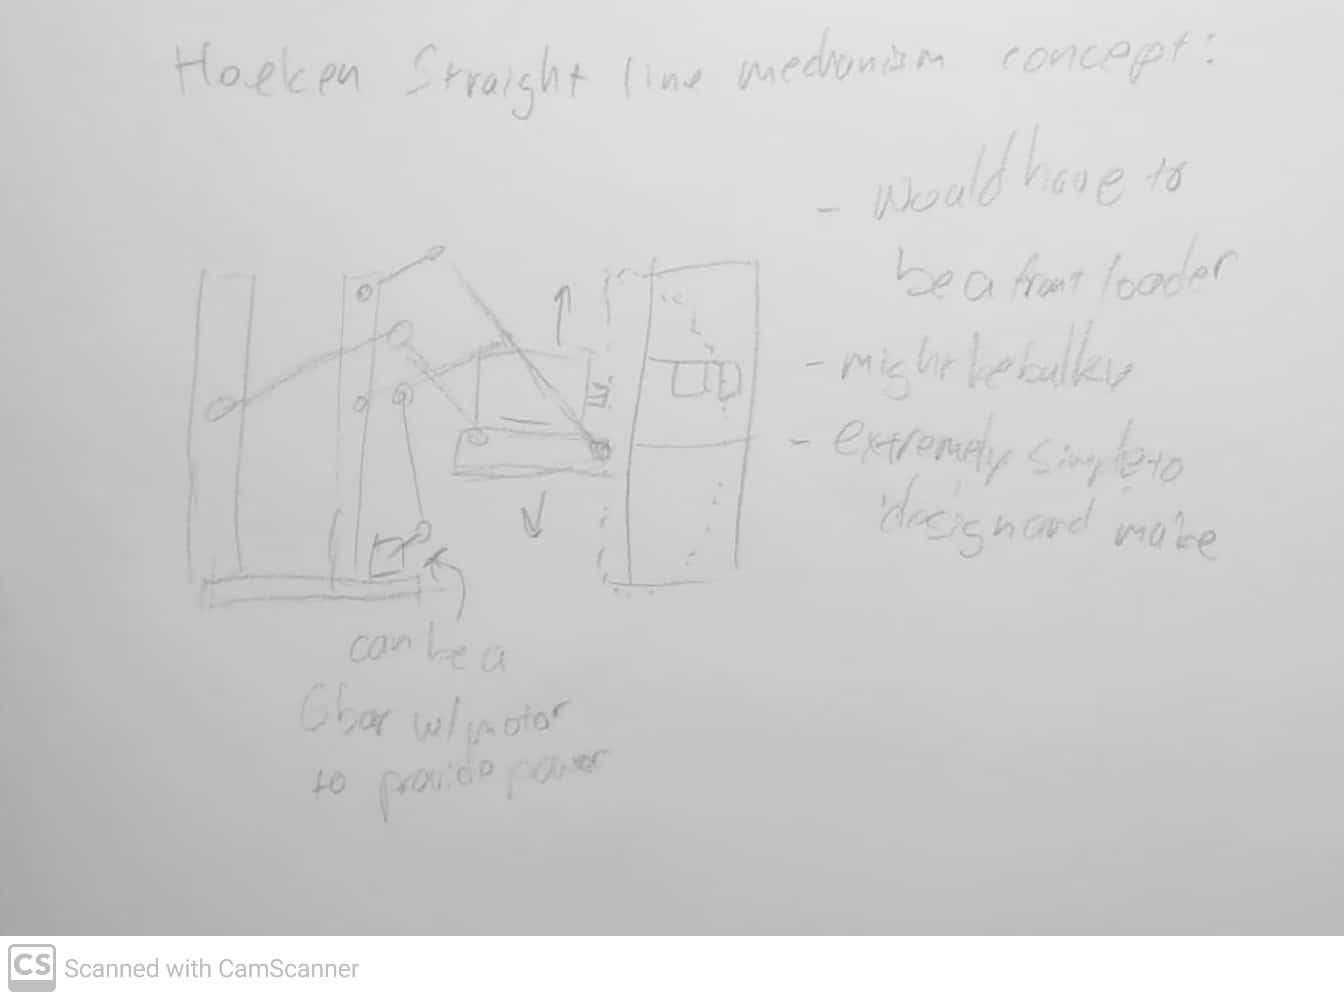 Hoeken Straight line mechanism concept:
- Would have to
be a front loader
- might be bulky
- extremely simple to
design and make
can be a
6bar w/ motor
to provide power
CS Scanned with CamScanner